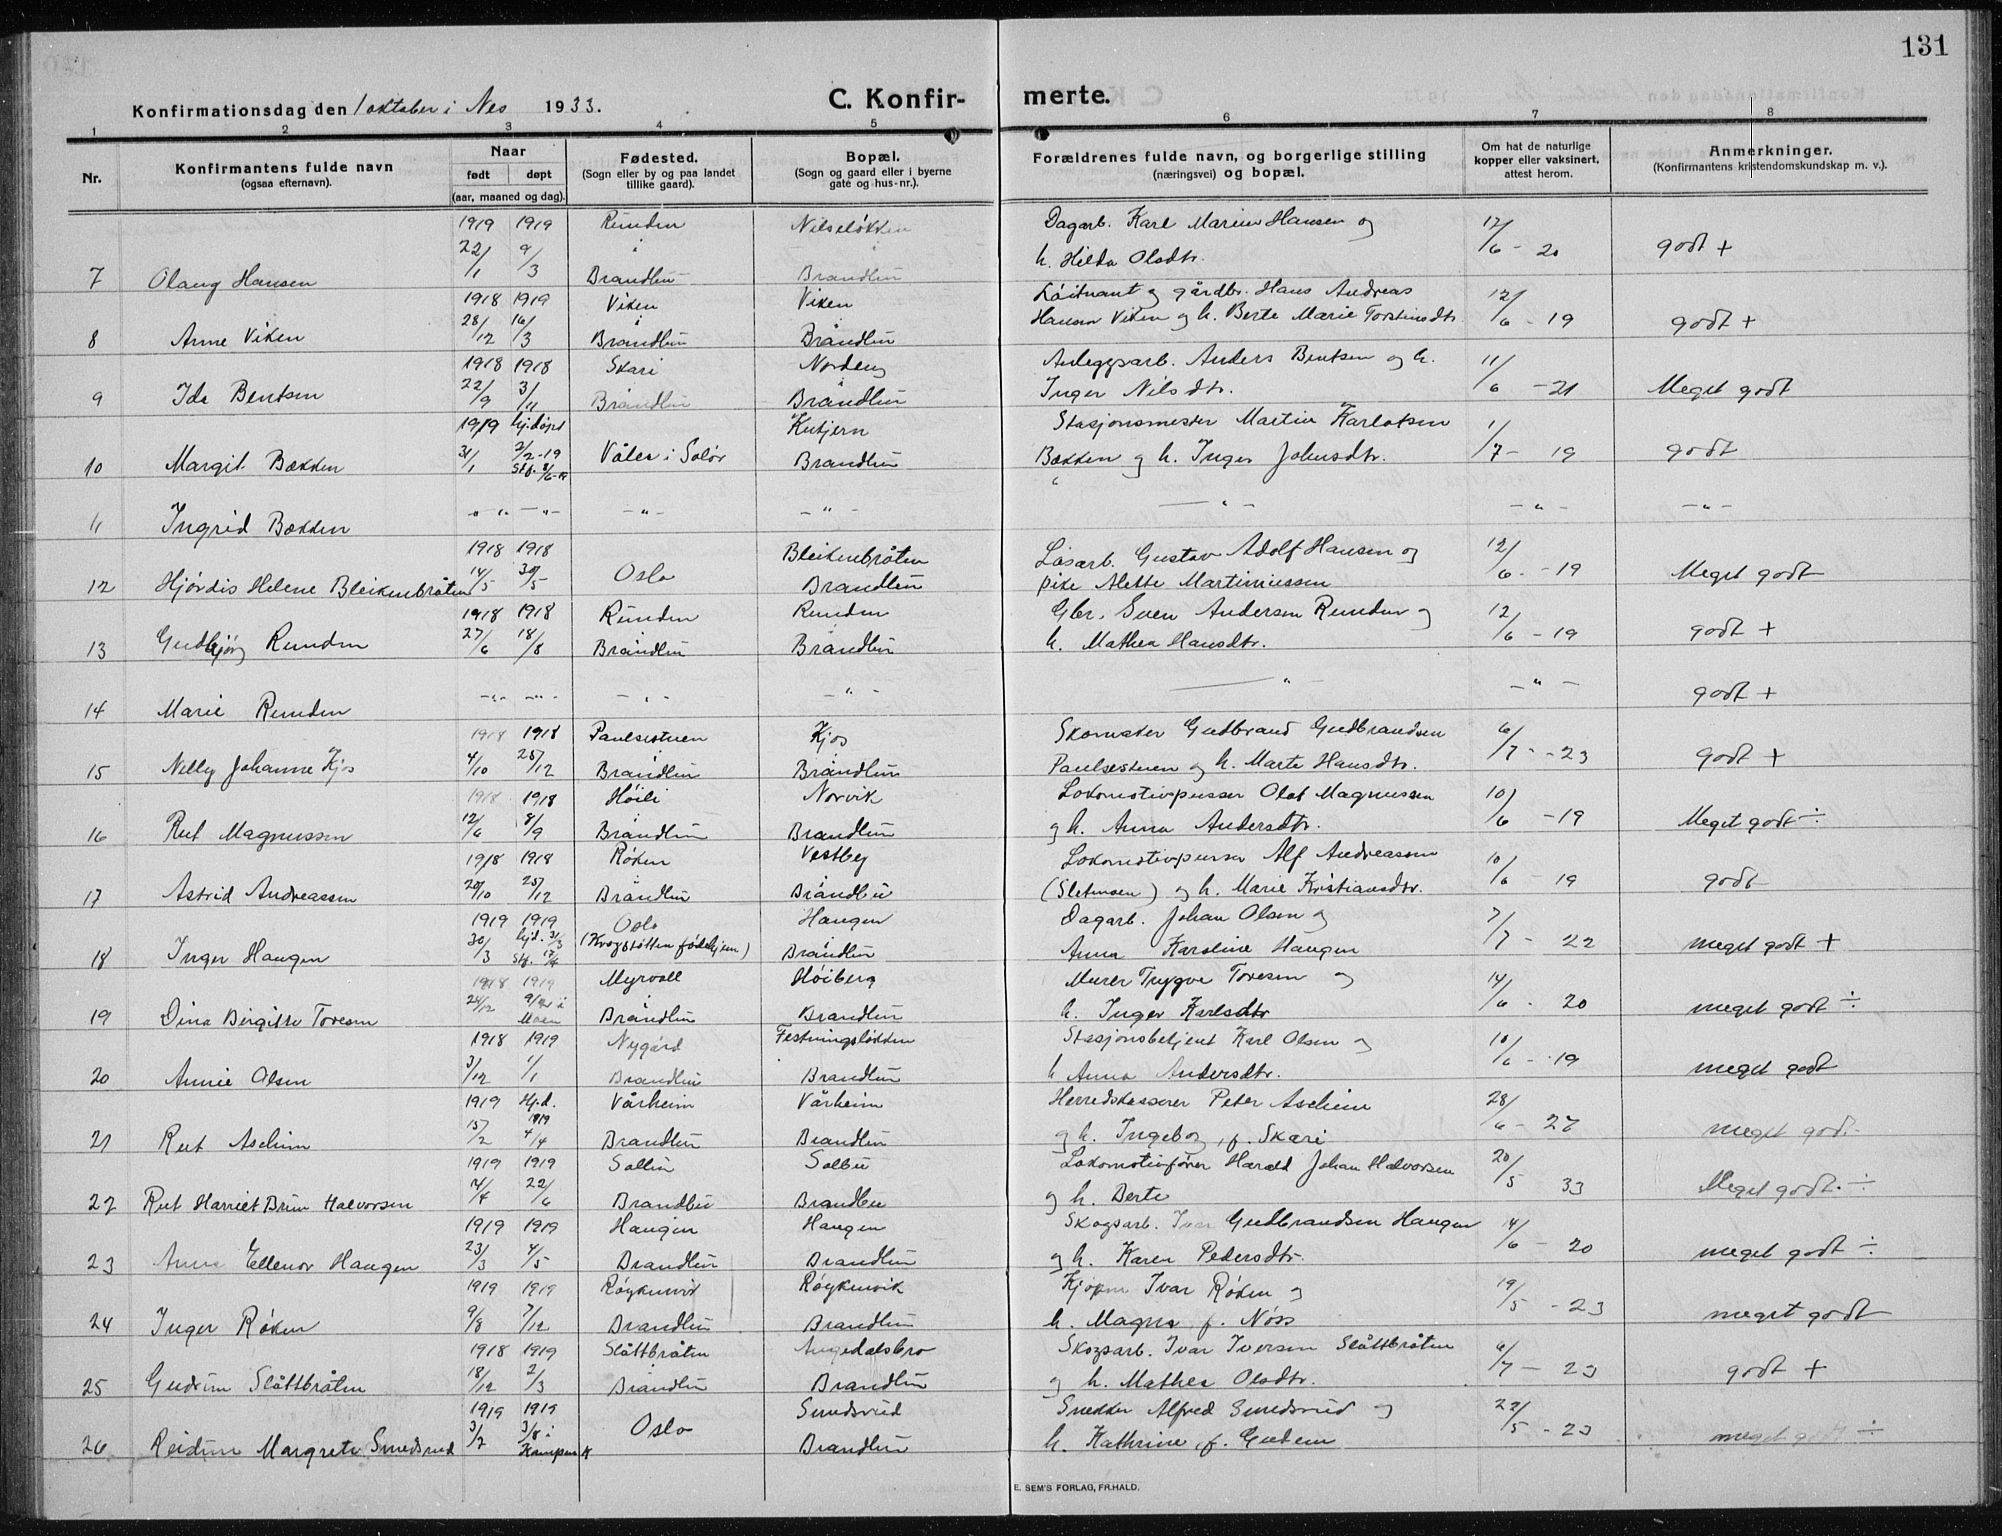 131
Konfirmationsdag den 1 oktober i Nes 1933.
C. Konfirmerte.
1 2 3 4 5 6 7 8
Nr.
Konfirmantens fulde navn
(ogsaa efternavn).
Naar
født døpt
(aar, maaned og dag).
Fødested.
(Sogn eller by og paa landet
tillike gaard).
Bopæl.
(Sogn og gaard eller i byerne
gate og hus-nr.).
Forældrenes fulde navn, og borgerlige stilling
(næringsvei) og bopæl.
Om hat de naturlige
kopper eller vaksinert,
attest herom.
Anmerkninger.
(Konfirmantens kristendomskundskap m. v.).
1919 1919 Runden Nilseløkken Dagarb. Karl Marius Hansen og 12/6 - 20 godt +
7 Olaug Hansen 22/1 9/3 i Brandbu Brandbu h. Hilda Olsdtr.
1918 1919 Viken Viken Løitnant og gårdbr. Hans Andreas 12/6 - 19 godt +
8 Anne Viken 28/12 16/3 i Brandbu i Brandbu Hansen Viken og h. Berte Marie Torstensdtr.
1918 1918 Skari Noreng Anleggsarb. Anders Bentsen og h. 11/6 - 21 Meget godt
9 Ida Bentsen 22/9 3/11 Brandbu i Brandbu Inger Nilsdtr.
1919 hj.døpt Kutjern Stasjonsmester Martin Karlotsen 1/7 - 19 godt
10 Margit Bækken 31/1 2/2-19 Stf. 8/6-19 Våler i Solør Brandbu Bækken og h. Inger Johnsdtr.
11 Ingrid Bækken -"- -"- -"- -"- -"- -"- -"-
1918 1918 Bleikenbråten Løsarb. Gustav Adolf Hansen og 12/6 - 19 Meget godt
12 Hjørdis Helene Bleikenbråten 14/5 30/5 Oslo Brandbu pike Alette Martinussen
1918 1918 Runden Runden Gbr. Sven Andersen Runden og 12/6 - 19 godt +
13 Gudbjørg Runden 27/6 18/8 Brandbu Brandbu h. Mathea Hansdtr.
14 Marie Runden -"- -"- -"- -"- -"- -"- godt +
1918 1918 Paulsestuen Kjos Skomaker Gudbrand Gudbrandsen 6/7 - 23 godt +
15 Nelly Johanne Kjos 4/10 25/12 Brandbu Brandbu Paulsestuen og h. Marte Hansdtr.
1918 1918 Høili Norvik Lokomotivpusser Olaf Magnussen 10/6 - 19 Meget godt ÷
16 Rut Magnussen 12/6 8/9 Brandbu Brandbu og h. Anna Andersdtr.
1918 1918 Røken Vestby Lokomotivpusser Alf Andreassen 10/6 - 19 godt
17 Astrid Andreassen 20/10 25/12 Brandbu Brandbu (Sletmoen) og h. Marie Kristiansdtr.
1919 1919 Oslo Haugen Dagarb. Johan Olsen og 7/7 - 22 meget godt +
18 Inger Haugen 30/3 hj.d. 31/3 Stf. 17/4 (Krogstøtten fødehjem) Brandbu Anna Karoline Haugen
1918 1919 Myrvoll Høiberg Murer Trygve Toresen og 14/6 - 20 meget godt ÷
19 Dina Birgitte Toresen 24/12 i Moen Brandbu Brandbu h. Inger Karlsdtr
1918 1919 Nygård Festningsløkken Stasjonsbetjent Karl Olsen og 10/6 - 19 meget godt
20 Annie Olsen 3/12 1/1 Brandbu Brandbu h Anna Andersdtr.
1919 Hj.d. Vårheim Vårheim Herredskasserer Peter Ascheim 28/6 - 27 meget godt
21 Rut Ascheim 15/2 1919 4/4 Brandbu Brandbu og h. Ingeborg, f. Skari
1919 1919 Solbu Solbu Lokomotivfører Harald Johan Halvorsen 20/5 33 Meget godt. ÷
22 Rut Harriet Brun Halvorsen 4/4 22/6 Brandbu Brandbu og h. Berte
1919 1919 Haugen Haugen Skogsarb. Ivar Gudbrandsen Haugen 14/6 - 20 meget godt ÷
23 Anna Ellenor Haugen 23/3 4/5 Brandbu Brandbu og h. Karen Pedersdtr.
1919 1919 Røykenvik Røykenvik Kjøpm Ivar Røken og 19/5 - 23 meget godt
24 Inger Røken 9/8 7/12 Brandbu Brandbu h. Magna f. Nøss
1918 1919 Slåttbråten Augedalsbro Skogsarb. Ivar Iversen Slåttbråten 6/7 - 23 godt +
25 Gudrun Slåttbråten 18/12 2/3 Brandbu Brandbu og h. Mathea Olsdtr.
1919 1919 Smedsrud Snekker Alfred Smedsrud og 22/5 - 23 meget godt ÷
26 Reidun Margrete Smedsrud 3/2 3/8 i Kampen k Oslo Brandbu h. Kathrine, f. Gutem
E. SEM'S FORLAG, FR.HALD.